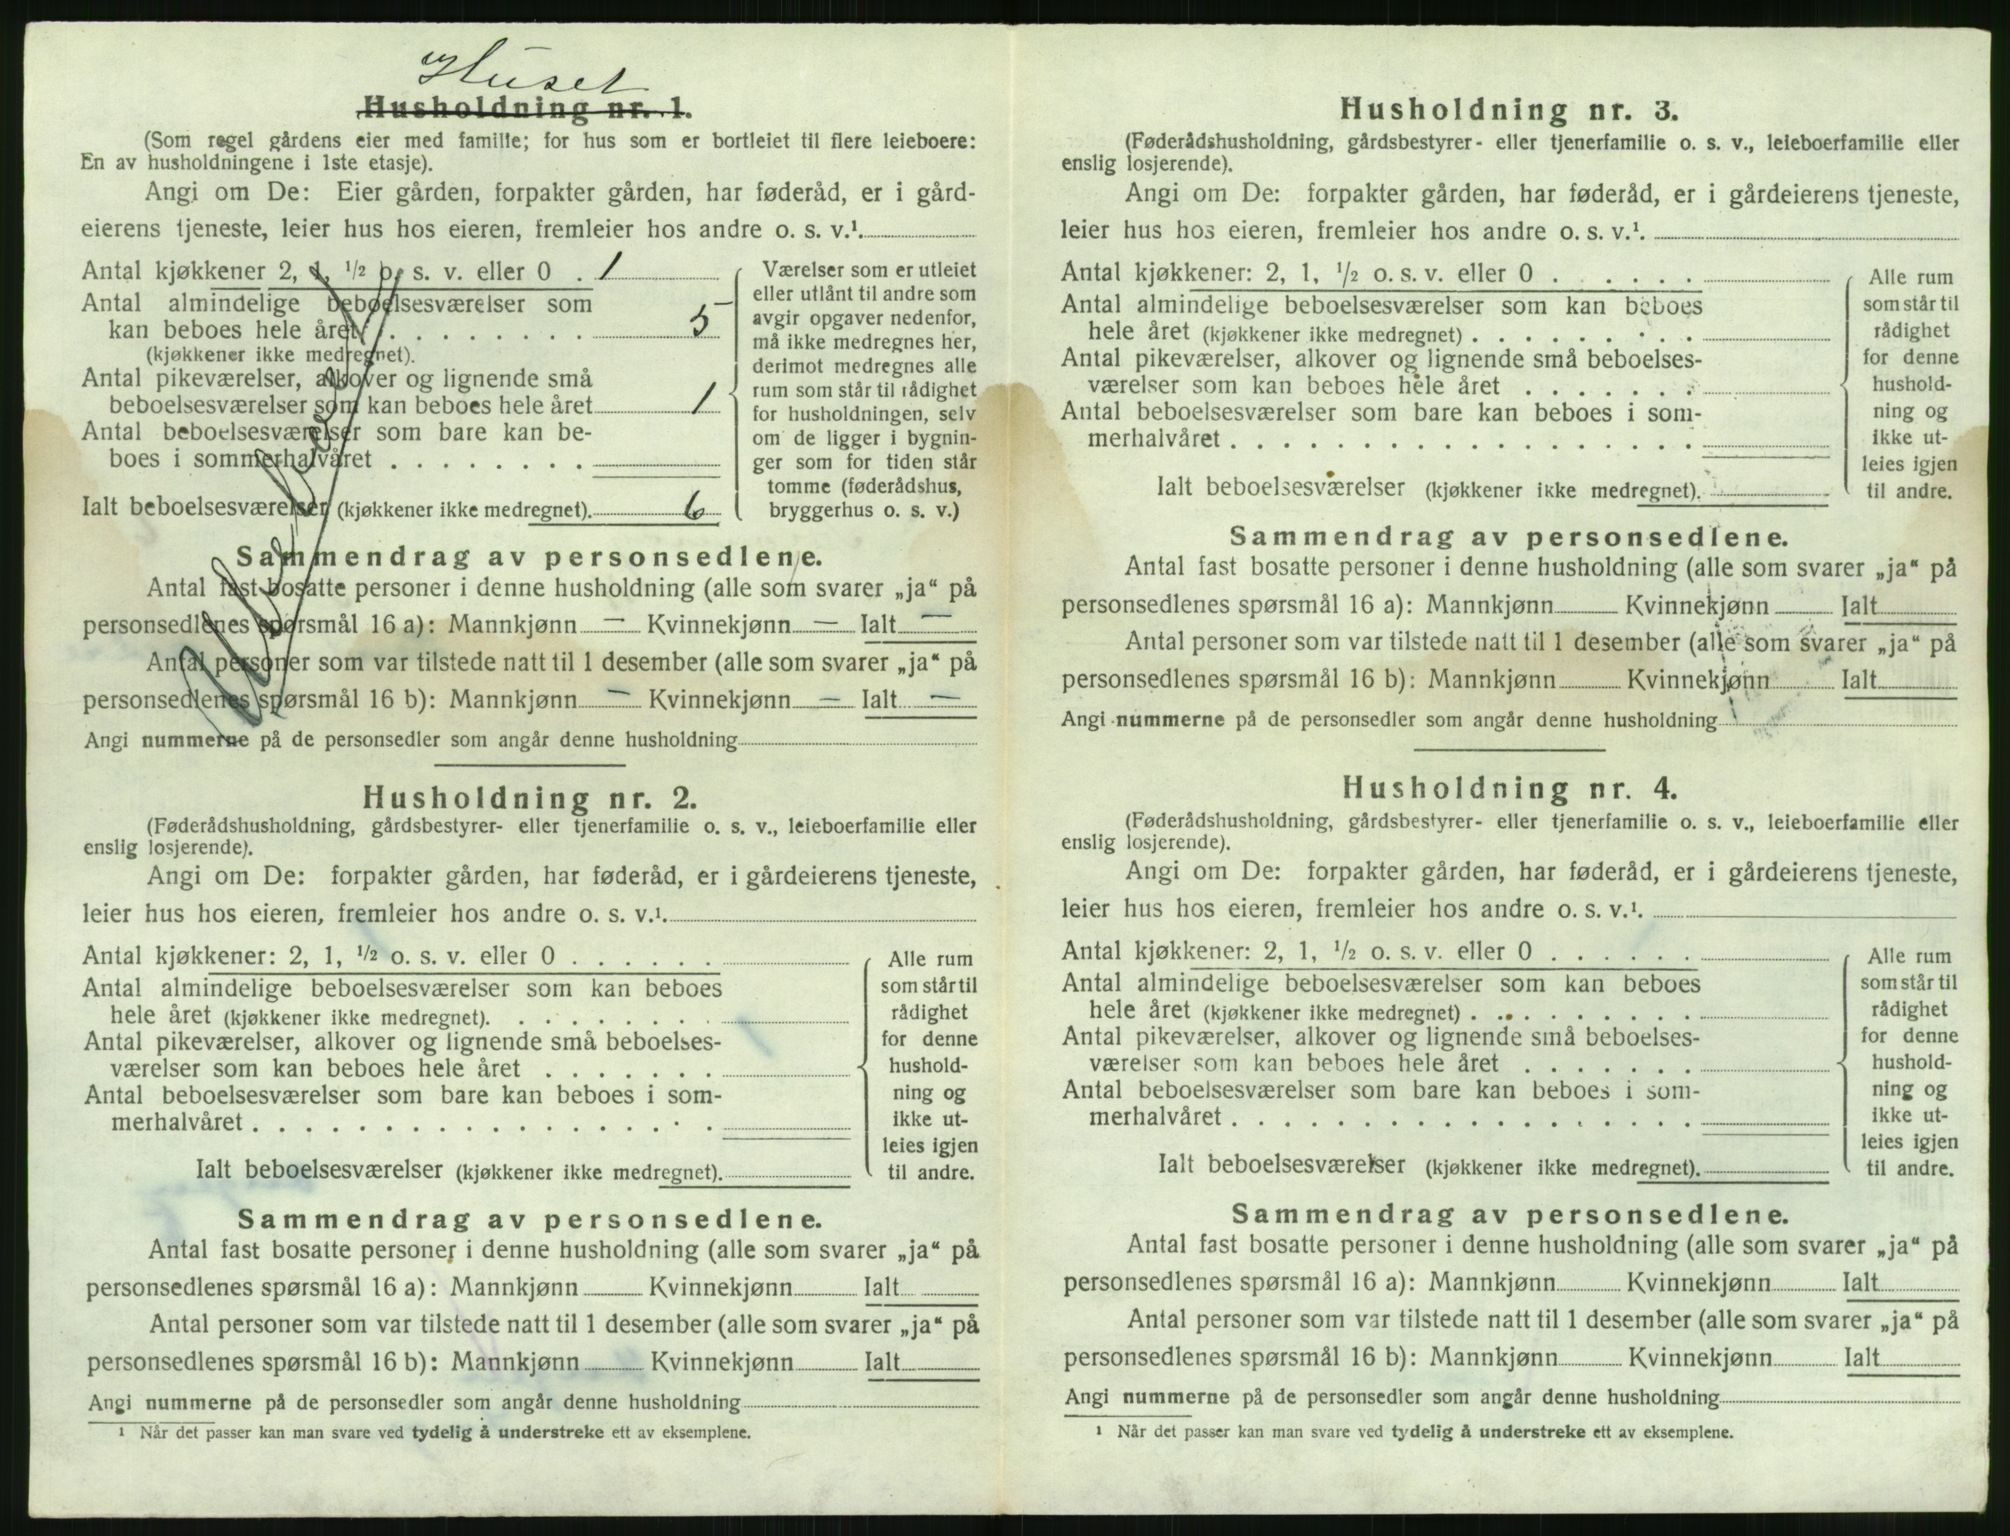 Huset
Husholdning nr. 1.
(Som regel gårdens eier med familie; for hus som er bortleiet til flere leieboere:
En av husholdningene i 1ste etasje).
Angi om De: Eier gården, forpakter gården, har føderåd, er i gård-
eierens tjeneste, leier hus hos eieren, fremleier hos andre o. s. v.¹
Antal kjøkkener 2, 1, ½ o. s. v. eller 0 . 1
Antal almindelige beboelsesværelser som
kan beboes hele året . . . . . . . . 5
(kjøkkener ikke medregnet).
Antal pikeværelser, alkover og lignende små
beboelsesværelser som kan beboes hele året 1
Antal beboelsesværelser som bare kan be-
boes i sommerhalvåret . . . . . . . .
Ialt beboelsesværelser (kjøkkener ikke medregnet). 6
Værelser som er utleiet
eller utlånt til andre som
avgir opgaver nedenfor,
må ikke medregnes her,
derimot medregnes alle
rum som står til rådighet
for husholdningen, selv
om de ligger i bygnin-
ger som for tiden står
tomme (føderådshus,
bryggerhus o. s. v.)
Ubeboet
Sammendrag av personsedlene.
Antal fast bosatte personer i denne husholdning (alle som svarer „ja“ på
personsedlenes spørsmål 16 a): Mannkjønn — Kvinnekjønn — Ialt —
Antal personer som var tilstede natt til 1 desember (alle som svarer „ja“ på
personsedlenes spørsmål 16 b): Mannkjønn — Kvinnekjønn — Ialt —
Angi nummerne på de personsedler som angår denne husholdning
Husholdning nr. 2.
(Føderådshusholdning, gårdsbestyrer- eller tjenerfamilie o. s. v., leieboerfamilie eller
enslig losjerende).
Angi om De: forpakter gården, har føderåd, er i gårdeierens tjeneste,
leier hus hos eieren, fremleier hos andre o. s. v.¹.
Antal kjøkkener: 2, 1, ½ o. s. v. eller 0 . . . . . .
Antal almindelige beboelsesværelser som kan beboes
hele året (kjøkkener ikke medregnet). . . . . . . . .
Antal pikeværelser, alkover og lignende små beboelses-
værelser som kan beboes hele året . . . . . . .
Antal beboelsesværelser som bare kan beboes i som-
merhalvåret . . . . . . . . . . . . . . . . . .
Ialt beboelsesværelser (kjøkkener ikke medregnet).
Alle rum
som står til
rådighet
for denne
hushold-
ning og
ikke ut-
leies igjen
til andre.
Sammendrag av personsedlene.
Antal fast bosatte personer i denne husholdning (alle som svarer „ja“ på
personsedlenes spørsmål 16 a): Mannkjønn Kvinnekjønn Ialt
Antal personer som var tilstede natt til 1 desember (alle som svarer „ja“ på
personsedlenes spørsmål 16 b): Mannkjønn Kvinnekjønn Ialt
Angi nummerne på de personsedler som angår denne husholdning
¹ Når det passer kan man svare ved tydelig å understreke ett av eksemplene.
Husholdning nr. 3.
(Føderådshusholdning, gårdsbestyrer- eller tjenerfamilie o. s. v., leieboerfamilie eller
enslig losjerende).
Angi om De: forpakter gården, har føderåd, er i gårdeierens tjeneste,
leier hus hos eieren, fremleier hos andre o. s. v.¹.
Antal kjøkkener: 2, 1, ½ o. s. v. eller 0 . . . . . .
Antal almindelige beboelsesværelser som kan beboes
hele året (kjøkkener ikke medregnet) . . . . . . . . .
Antal pikeværelser, alkover og lignende små beboelses-
værelser som kan beboes hele året . . . . . . .
Antal beboelsesværelser som bare kan beboes i som-
merhalvåret . . . . . . . . . . . . . . . . . .
Ialt beboelsesværelser (kjøkkener ikke medregnet).
Alle rum
som står til
rådighet
for denne
hushold-
ning og
ikke ut-
leies igjen
til andre.
Sammendrag av personsedlene.
Antal fast bosatte personer i denne husholdning (alle som svarer „ja“ på
personsedlenes spørsmål 16 a): Mannkjønn Kvinnekjønn Ialt
Antal personer som var tilstede natt til 1 desember (alle som svarer „ja“ på
personsedlenes spørsmål 16 b): Mannkjønn Kvinnekjønn Ialt
Angi nummerne på de personsedler som angår denne husholdning
Husholdning nr. 4.
(Føderådshusholdning, gårdsbestyrer- eller tjenerfamilie o. s. v., leieboerfamilie eller
enslig losjerende).
Angi om De: forpakter gården, har føderåd, er i gårdeierens tjeneste,
leier hus hos eieren, fremleier hos andre o. s. v.¹.
Antal kjøkkener: 2, 1, ½ o. s. v. eller 0 . . . . . .
Antal almindelige beboelsesværelser som kan beboes
hele året (kjøkkener ikke medregnet) . . . . . . . . .
Antal pikeværelser, alkover og lignende små beboelses-
værelser som kan beboes hele året . . . . . . .
Antal beboelsesværelser som bare kan beboes i som-
merhalvåret . . . . . . . . . . . . . . . . . .
Ialt beboelsesværelser (kjøkkener ikke medregnet).
Alle rum
som står til
rådighet
for denne
hushold-
ning og
ikke ut-
leies igjen
til andre.
Sammendrag av personsedlene.
Antal fast bosatte personer i denne husholdning (alle som svarer „ja“ på
personsedlenes spørsmål 16 a): Mannkjønn Kvinnekjønn Ialt
Antal personer som var tilstede natt til 1 desember (alle som svarer „ja“ på
personsedlenes spørsmål 16 b): Mannkjønn Kvinnekjønn Ialt
Angi nummerne på de personsedler som angår denne husholdning
¹ Når det passer kan man svare ved tydelig å understreke ett av eksemplene.